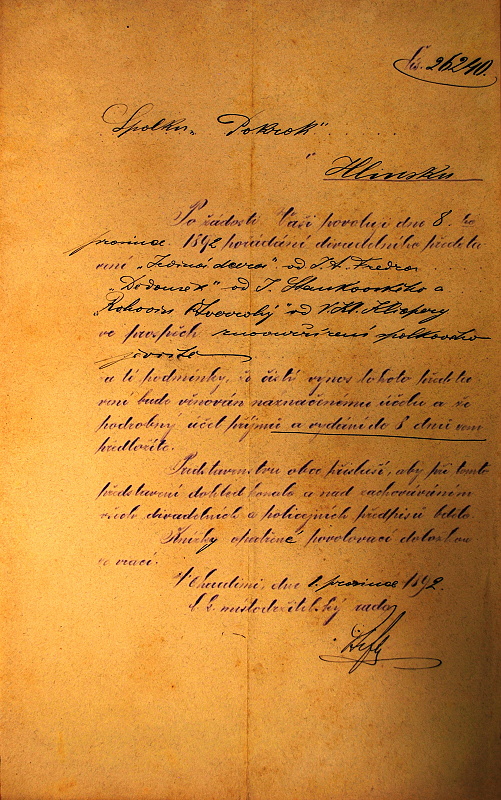 Čís. 26240.
Spolku „Pokrok“
v Hlinsku
Po žádosti Vaší povoluji dne 8. ho
prosince 1892 pořádání divadelního předsta
vení „Jediná dcera“ od J. A. Fredra
„Dodomek“ od J. Stankovského a
„Rohovín Čtverrohý“ od V. Kl. Klicpery
ve prospěch znovuzřízení spolkového
jeviště
za té podmínky, že čistý výnos tohoto předsta
vení bude věnován naznačenému účelu a že
podrobný účet příjmů a vydání do 8 dnů sem
předložíte.
Představenstvu obce přísluší, aby při tomto
představení dohled konalo a nad zachováváním
všech divadelních a policejních předpisů bdělo.
Knížky opatřené povolovací doložkou
se vrací.
V Chrudimi, dne 1. prosince 1892.
C. k. místodržitelský rada